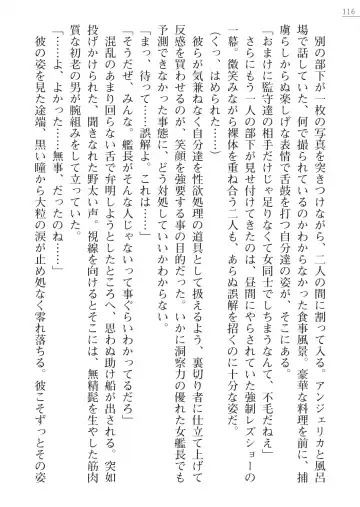 116
別の部下が一枚の写真を突きつけながら、二人の間に割って入る。アンジェリカと風呂
場で話していた、何で撮られているのかわからなかった食事風景。豪華な料理を前に、捕
虜らしからぬ楽しげな表情で舌鼓を打つ自分達の姿が、そこにある。
「おまけに監守達の相手だけじゃ足りなくて女同士でしちまうなんて、不毛だねえ」
さらにもう一人の部下が見せ付けてきたのは、昼間にやらされていた強制レズショーの
一幕。微笑みながら裸体を重ね合う二人も、あらぬ誤解を招くのに十分な姿だ。
（くっ、はめられた……）
彼らが気兼ねなく自分達を性欲処理の道具として扱えるよう、裏切り者に仕立て上げて
反感を買わせるのが、笑顔を強要する事の目的だった。いかに洞察力の優れた女艦長でも
予測できなかった事態に、どう対処していいかわからない。
「まっ、待って……誤解よ、これは……」
「そうだぜ、みんな。艦長がそんな人じゃないって事ぐらいわかってるだろ」
混乱のあまり回らない舌で弁明しようとしたところへ、思わぬ助け船が出される。突如
投げかけられた、聞きなれた野太い声。視線を向けるとそこには、無精髭を生やした筋肉
質な初老の男が腕組みをして立っていた。
「……よ、よかった……無事、だったのね……」
彼の姿を見た途端、黒い瞳から大粒の涙が止め処なく零れ落ちる。彼こそずっとその姿